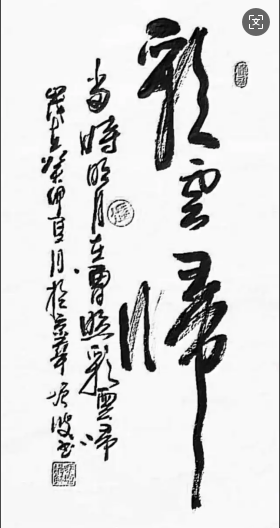 彩雲歸
当時明月在曾照彩雲歸
歲在癸卯夏月於京華